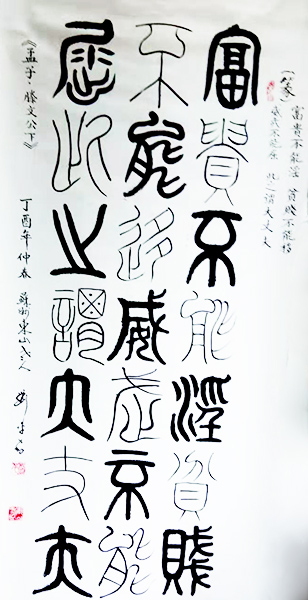 (篆)富貴不能淫 貧賤不能移
威武不能屈 此之謂大丈夫
富貴不能淫貧賤
不能移威武不能
屈此之謂大丈夫
《孟子·滕文公下》
丁酉年仲春 蘇州東山